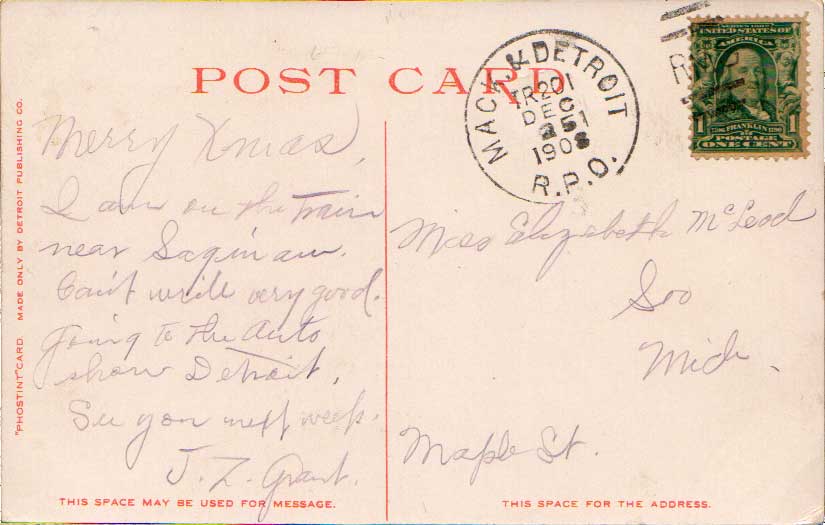 POST CARD
Merry Xmas,
I am on the train
near Saginaw.
Can't write very good.
Going to the Auto
show Detroit.
See you next week.
J. Z. Grant.
THIS SPACE MAY BE USED FOR MESSAGE.
"PHOSTINT" CARD. MADE ONLY BY DETROIT PUBLISHING CO.
MACK. & DETROIT
TR201
DEC
251
1908
R.P.O.
SERIES 1902
UNITED STATES OF
AMERICA
1 FRANKLIN 1
POSTAGE
ONE CENT
Miss Elizabeth McLeod
Soo
Mich
Maple St.
THIS SPACE FOR THE ADDRESS.